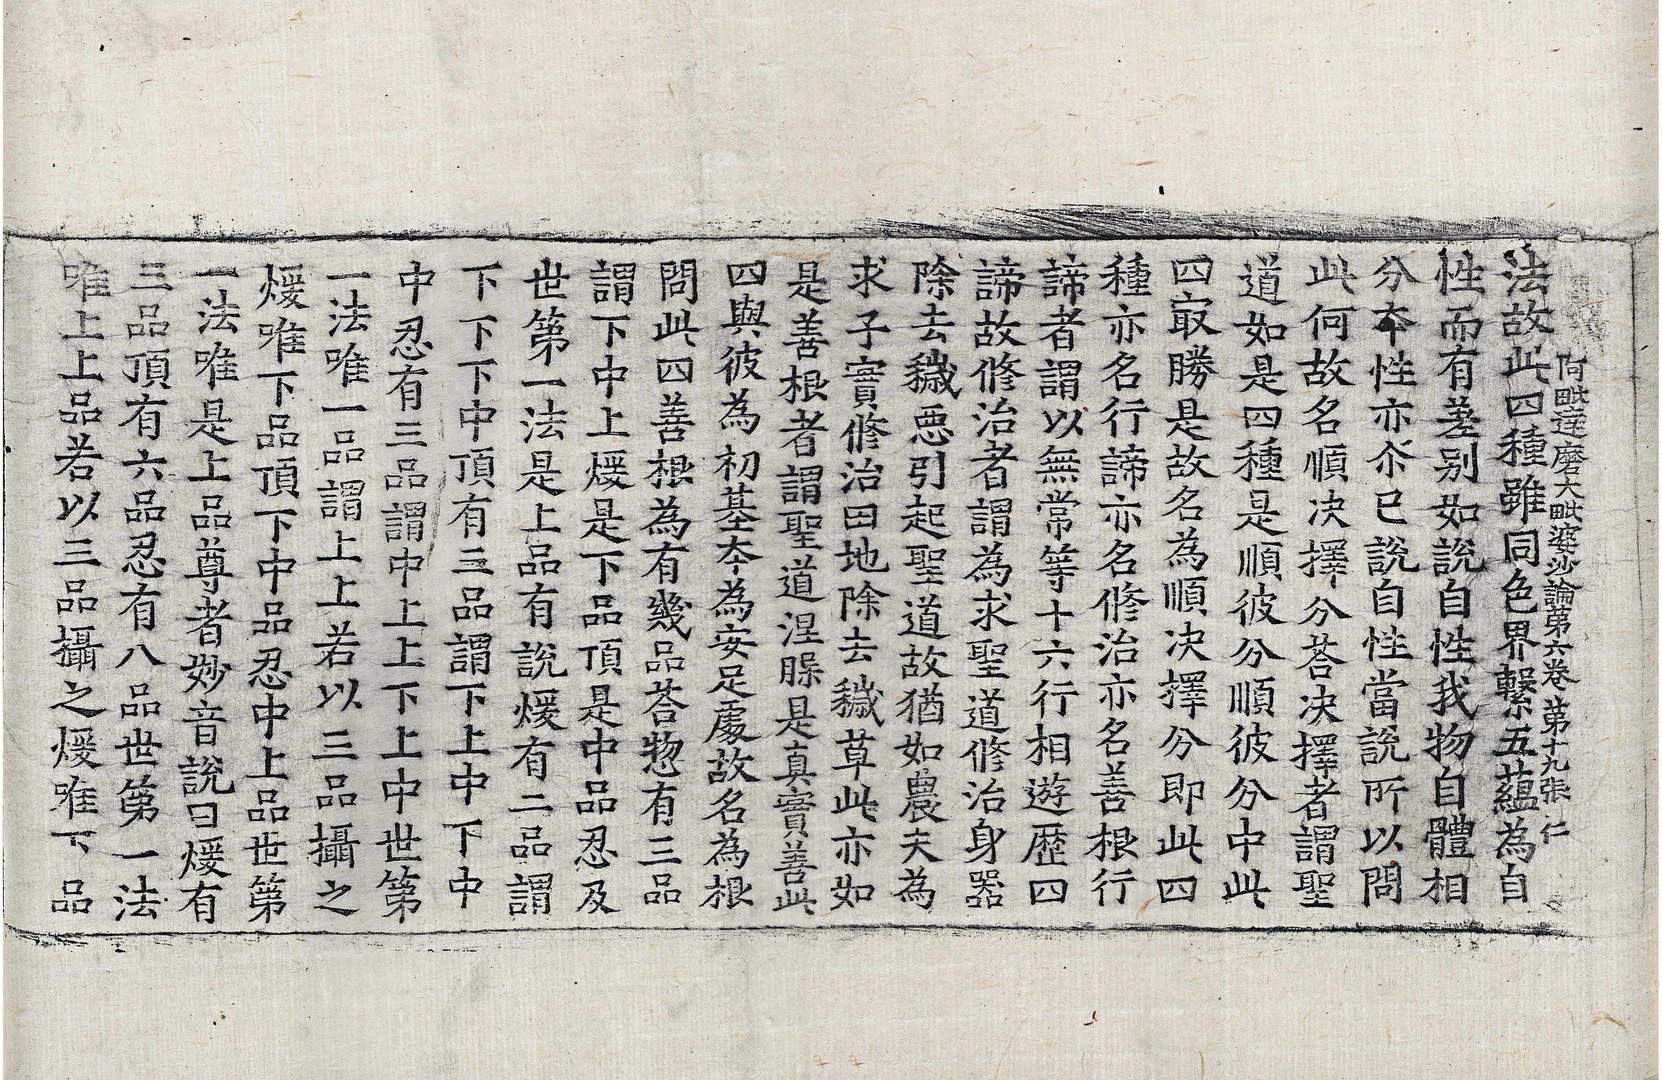 阿毗達磨大毗婆沙論第六卷 第十九張 仁
法故此四種雖同色界繫五蘊為自
性而有差别如說自性我物自體相
分夲性亦尒已說自性當說所以問
此何故名順决擇分荅决擇者謂聖
道如是四種是順彼分順彼分中此
四㝡勝是故名為順决擇分即此四
種亦名行諦亦名修治亦名善根行
諦者謂以無常等十六行相遊歷四
諦故修治者謂為求聖道修治身器
除去穢惡引起聖道故猶如農夫為
求子實修治田地除去穢草此亦如
是善根者謂聖道涅槃是真實善此
四與彼為初基夲為安足處故名為根
問此四善根為有幾品荅惣有三品
謂下中上煖是下品頂是中品忍及
世第一法是上品有說煖有二品謂
下下下中頂有三品謂下上中下中
中忍有三品謂中上上下上中世第
一法唯一品謂上上若以三品攝之
煖唯下品頂下中品忍中上品世第
一法唯是上品尊者妙音說曰煖有
三品頂有六品忍有八品世第一法
唯上上品若以三品攝之煖唯下品